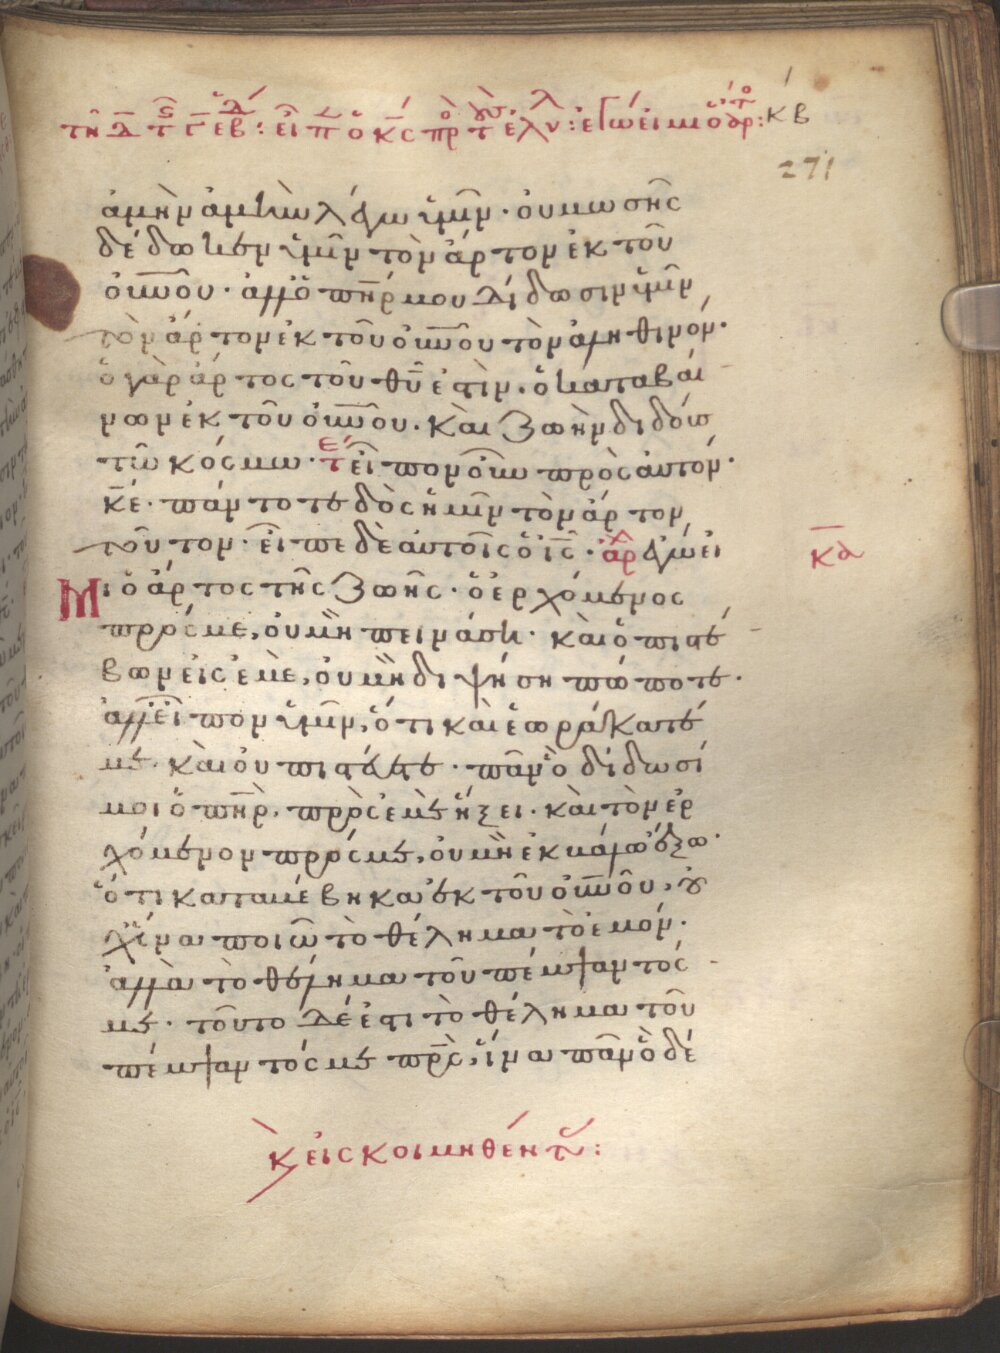 τῆ δ τ Γ εβδ : εἶπ ὁ κς πρ τ ἐλλν : ἐγώ εἰμι ὁ ἄρτο : κβ
271
ἀμὴν ἀμὴν λέγω ὑμῖν · οὐ μωσῆς
δέδωκεν ὑμῖν τὸν ἄρτον ἐκ τοῦ
οὐνοῦ · ἀλλ ὁ πηρ μου δίδωσιν ὑμῖν
τὸν ἄρτον ἐκ τοῦ οὐνοῦ τὸν ἀληθινόν ·
ὁ γὰρ ἄρτος τοῦ θυ ἐστὶν · ὁ καταβαί
νων ἐκ τοῦ οὐνοῦ · καὶ ζωὴν διδοὺς
τῶ κόσμω · τέ εἶπον οὖν πρὸς αὐτόν ·
κε · πάντοτε δὸς ἡμῖν τὸν ἄρτον
τοῦτον · εἶπε δὲ αὐτοῖς ὁ ις · ἀρ ἐγώ εἰ
μι ὁ ἄρτος τῆς ζωῆς · ὁ ἐρχόμενος
κδ
πρός με, οὐ μὴ πεινάσῃ · καὶ ὁ πιστεύ
ων εἰς ἐμὲ, οὐ μὴ διψήση πώποτε ·
ἀλλ εἶπον ὑμῖν, ὅτι καὶ ἑωράκατέ
με · καὶ οὐ πιστεύετε · πᾶν ὃ δίδωσί
μοι ὁ πηρ · πρὸς ἐμὲ ἥξει · καὶ τὸν ἐρ
χόμενον πρός με, οὐ μὴ ἐκβάλω ἔξω ·
ὅτι καταβέβηκα ἐκ τοῦ οὐνοῦ, οὐ
χ ἵνα ποιῶ τὸ θέλημα τὸ ἐμόν ·
ἀλλὰ τὸ θέλημα τοῦ πέμψαντός
με · τοῦτο δέ ἐστι τὸ θέλημα τοῦ
πέμψαντός με πρς, ἵνα πᾶν ὃ δέ
κ εἰς κοιμηθέντ :